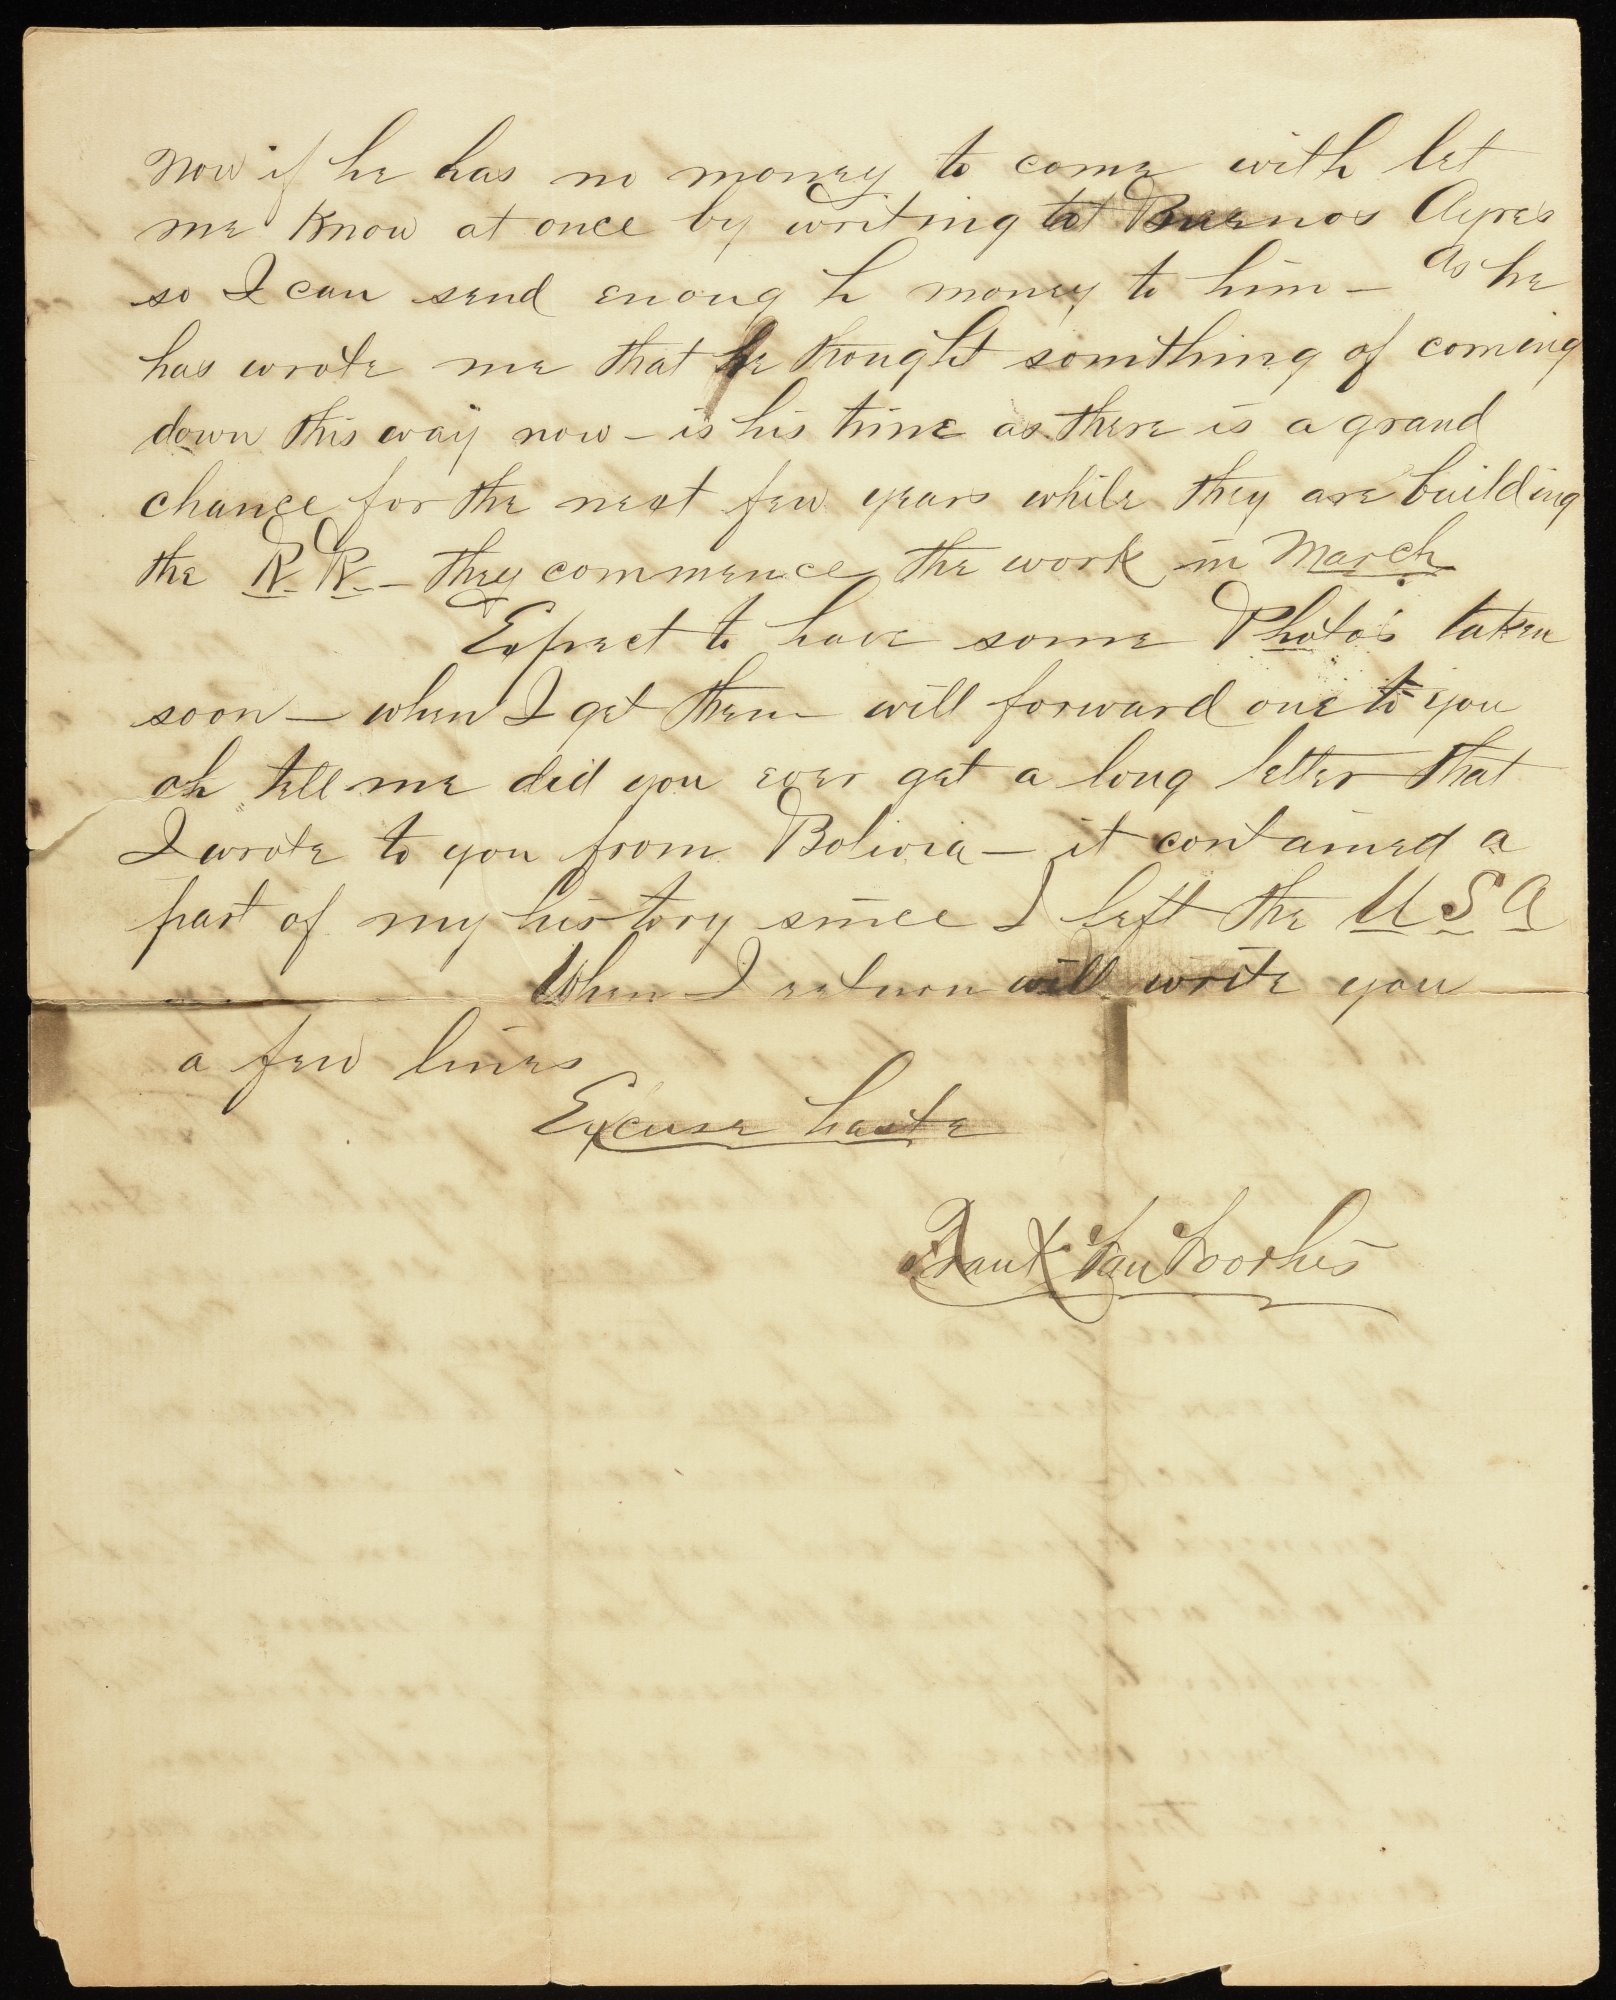 Now if he has no money to come with let
me know at once by writing to Buenos Ayres
so I can send enough money to him – As he
has wrote me that he thought somthing of coming
down this way now – is his time as there is a grand
chance for the next few years while they are building
the R. R. – they commence the work in March
Expect to have some Photo's taken
soon – when I get them will forward one to you
oh tell me did you ever get a long letter that
I wrote to you from Bolivia – it contained a
part of my history since I left the U S A
When I return will write you
a few lines
Excuse haste
Frank Van Voorhis